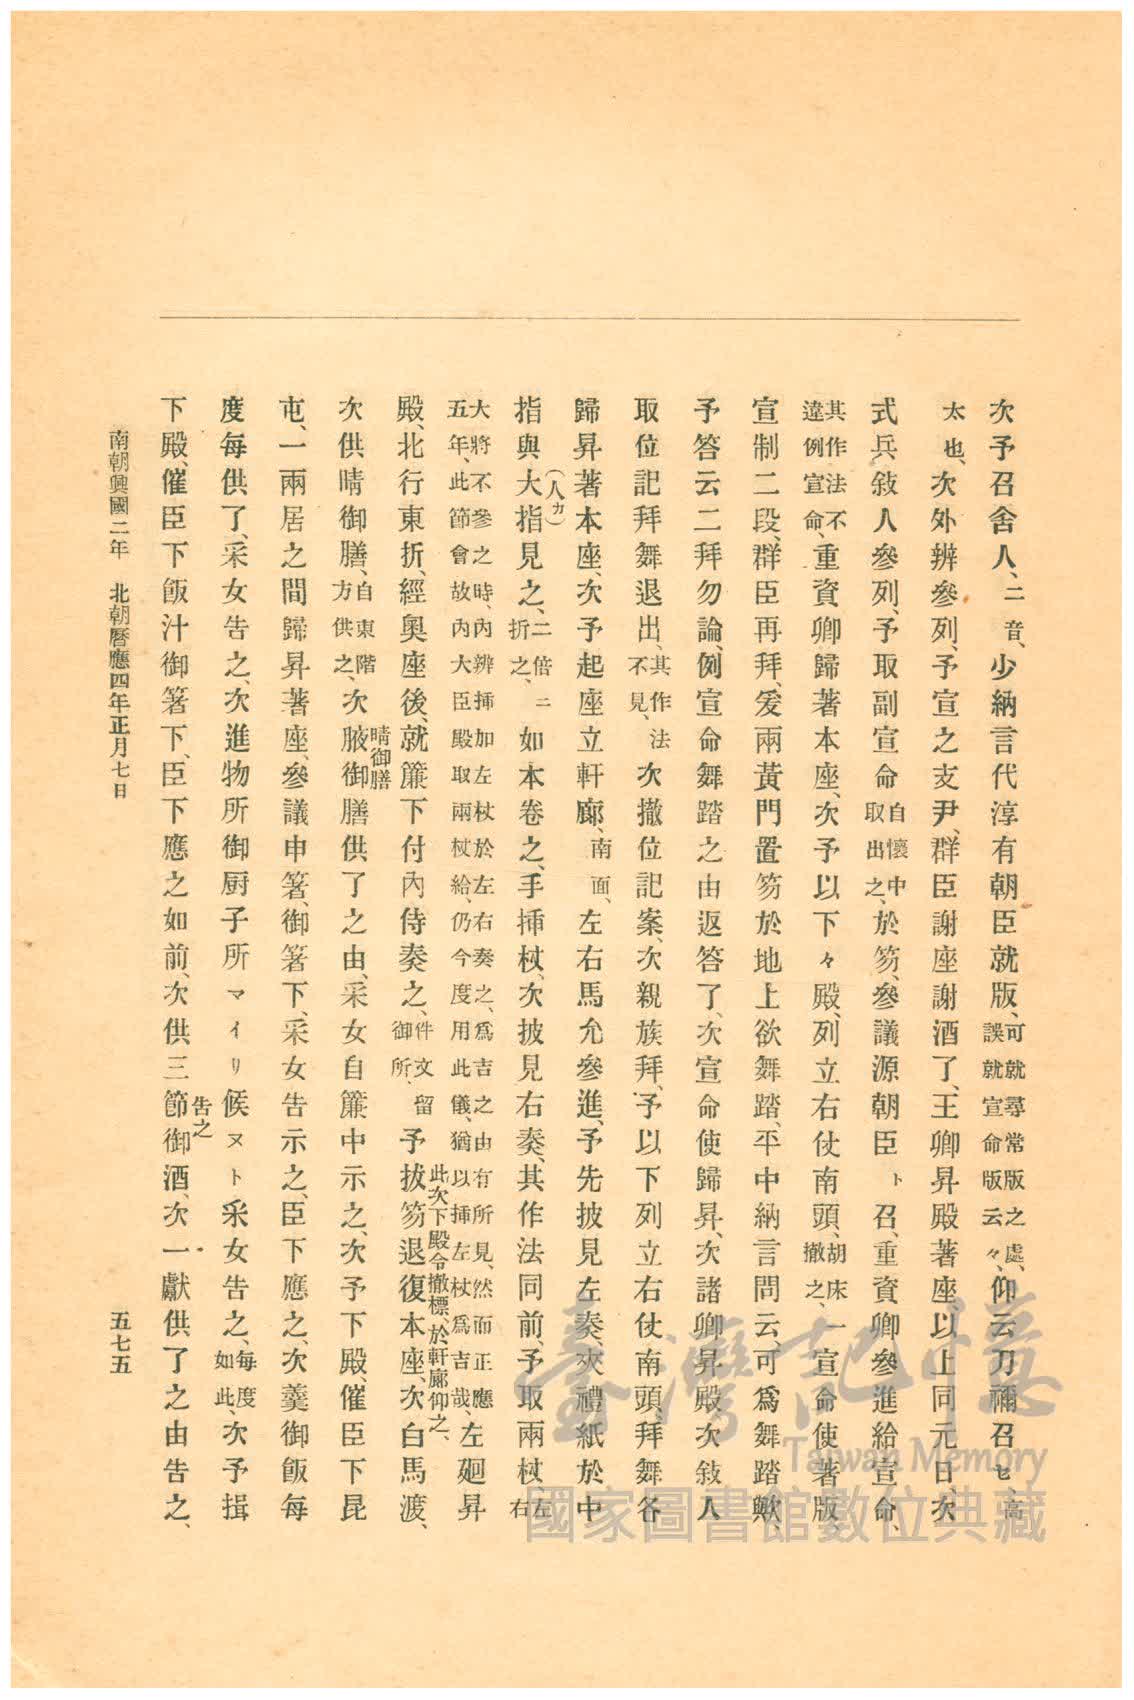 次予召舍人、二音、少納言代淳有朝臣就版、可就尋常版之處、誤就宣命版云々、仰云刀禰召セ、高
太也、次外辨參列、予宣之支尹、群臣謝座謝酒了、王卿昇殿著座以上同元日、次
式兵敍人參列、予取副宣命自懷中取出之、於笏、參議源朝臣ト召、重資卿參進給宣命、
其作法不違例宣命、重資卿歸著本座、次予以下々殿、列立右仗南頭、胡床撤之、一宣命使著版、
宣制二段、群臣再拜、爰兩黃門置笏於地上欲舞踏、平中納言問云、可爲舞踏歟、
予答云二拜勿論、例宣命舞踏之由返答了、次宣命使歸昇、次諸卿昇殿、次敍人
取位記拜舞退出、其作法不見、次撤位記案、次親族拜、予以下列立右仗、南頭、拜舞各
歸昇著本座、次予起座立軒廊、南面、左右馬允參進、予先披見左奏、夾禮紙於中
指與大指(人カ)見之、二倍ニ折之、如本卷之、手揷杖、次披見右奏、其作法同前、予取兩杖、左右
大將不參之時、內辨揷加左杖於左右奏之、爲吉之由有所見、然而正應五年、此節會故內大臣殿取兩杖給、仍今度用此儀、猶以揷左杖爲吉哉、左廻昇
殿、北行東折、經奧座後、就簾下付內侍奏之、件文留御所、予拔笏退復本座、此次下殿令撤標、於軒廊仰之、次白馬渡、
次供晴御膳、自東階方供之、次腋御膳晴御膳供了之由、采女自簾中示之、次予下殿、催臣下昆
屯、一兩居之間歸昇著座、參議申箸、御箸下、采女告示之、臣下應之、次羹御飯每
度每供了、采女告之、次進物所御厨子所マイリ候ヌト采女告之、每度如此、次予揖
下殿、催臣下飯汁御箸下、臣下應之如前、次供三節御酒、告之次一獻供了之由告之、
南朝興國二年　北朝曆應四年正月七日
五七五
臺灣記憶
Taiwan Memory
國家圖書館數位典藏